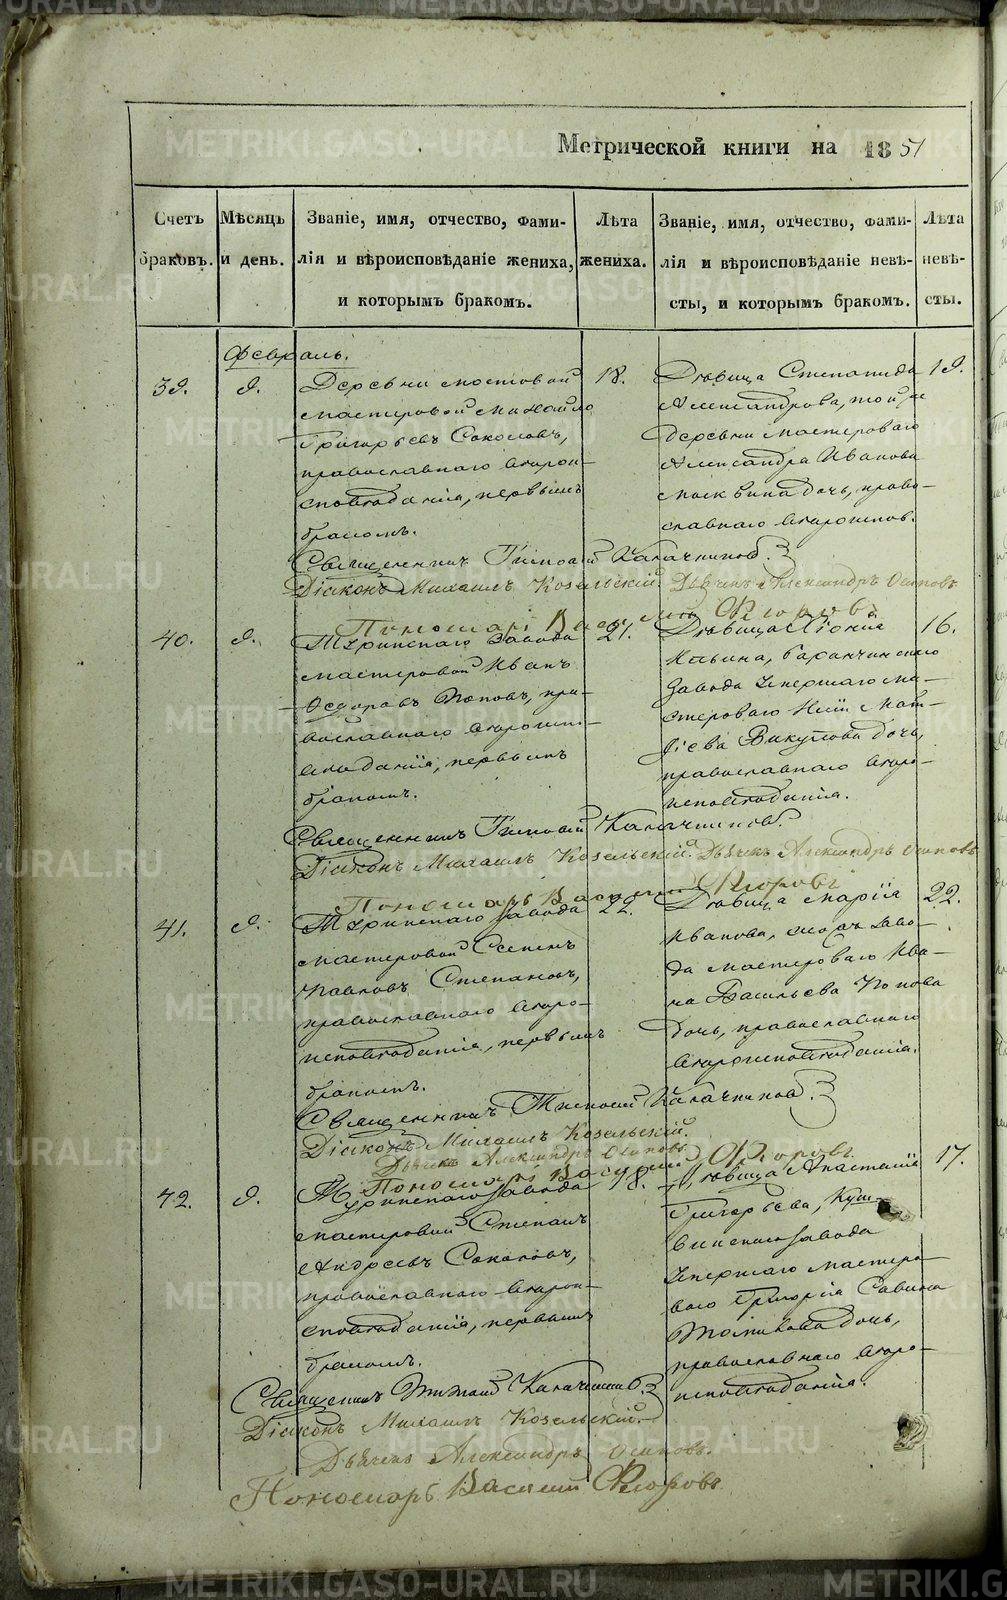 Метрической книги на 1851
Счетъ браковъ.
Мѣсяцъ и день.
Званіе, имя, отчество, фами-
лія и вѣроисповѣданіе жениха,
и которымъ бракомъ.
Лѣта жениха.
Званіе, имя, отчество, фами-
лія и вѣроисповѣданіе невѣ-
сты, и которымъ бракомъ.
Лѣта невѣ-
сты.
Февраль.
39.
9.
Деревни мостовой
мастеровой Михайло
Григорьевъ Соколовъ,
православнаго вѣрои-
сповѣданія, первымъ
бракомъ.
18.
Дѣвица Степанида
Александрова, той же
деревни мастероваго
Александра Иванова
дочь, право-
славнаго вѣроиспов.
19.
Священникъ Калачниковъ.
Діаконъ Михаилъ Козельскій. Дьячекъ Александръ Осиповъ
Пономарь Василій Флоровъ
40.
9.
Туринскаго завода
мастеровой Иванъ
Ѳедоровъ Поповъ, пра-
вославнаго вѣроиспо-
вѣданія, первымъ
бракомъ.
21.
Дѣвица
Ильина, Баранчинскаго
завода умершаго ма-
стероваго Ильи Мат-
фіева Викулова дочь,
православнаго вѣро-
исповѣданія.
16.
Священникъ Калачниковъ.
Діаконъ Михаилъ Козельскій. Дьячекъ Александръ Осиповъ
Пономарь Василій Флоровъ
41.
9.
Туринскаго завода
мастеровой Семенъ
Павловъ Степановъ,
православнаго вѣро-
исповѣданія, первымъ
бракомъ.
22.
Дѣвица Марія
Иванова, заво-
да мастероваго Ива-
на Васильева Попова
дочь, православнаго
вѣроисповѣданія.
22.
Священникъ Калачниковъ.
Діаконъ Михаилъ Козельскій.
Дьячекъ Александръ Осиповъ
Пономарь Василій Флоровъ.
42.
9.
Туринскаго завода
мастеровой Степанъ
Андреевъ Соколовъ,
православнаго вѣрои-
сповѣданія, первымъ
бракомъ.
18.
Дѣвица Анастасія
Григорьева, Куш-
винскаго завода
умершаго мастеро-
ваго Григорія Савина
дочь,
православнаго вѣро-
исповѣданія.
17.
Священникъ Калачниковъ
Діаконъ Михаилъ Козельскій.
Дьячекъ Александръ Осиповъ.
Пономарь Василій Флоровъ
METRIKI.GASO-URAL.RU